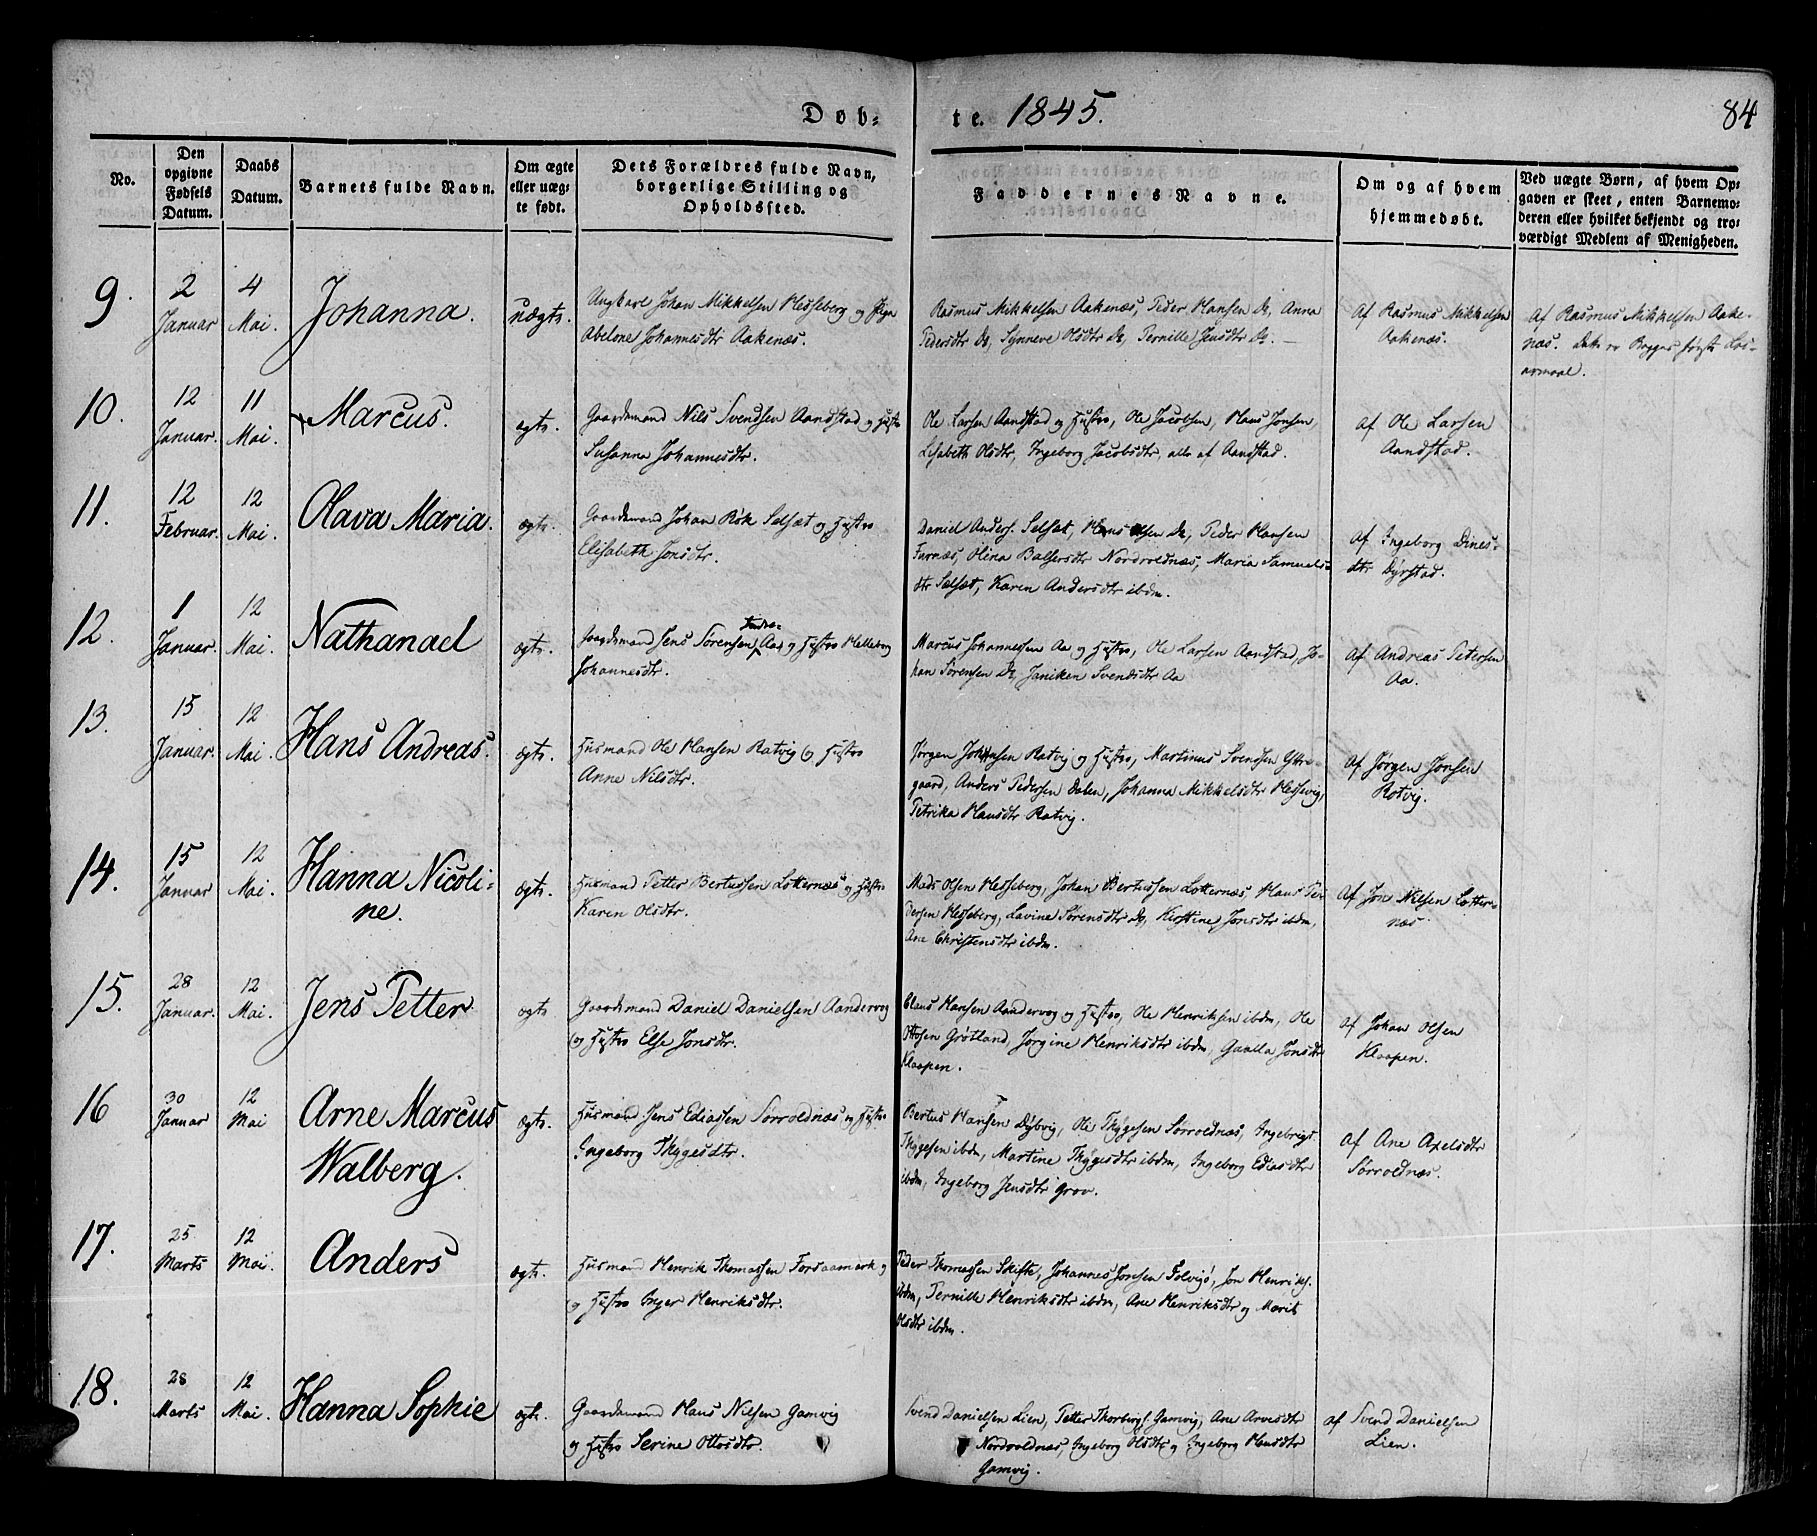 Døb- te. 1845. 84
No. Den opgivne Fødsels Datum. Daabs Datum. Barnets fulde Navn. Om ægte eller uæg- te født. Dets Forældres fulde Navn, borgerlige Stilling og Opholdssted. Faddernes Navne. Om og af hvem hjemmedøbt. Ved uægte Børn, af hvem Op- gaven er skeet, enten Barnemo- deren eller hvilket bekjendt og tro- værdigt Medlem af Menigheden.
9. 2 Januar 4 Mai. Johanna. uægte.
Ungkarl Johan Mikkelsen Hesseberg og Pige
Abelone Johannesdtr Aakenæs.
Rasmus Mikkelsen Aakenæs, Peder Hansen Do, Anna
Pedersdtr Do, Synneve Olsdtr Do, Pernille Jensdtr Do. —
Af Rasmus Mikkelsen
Aakenæs.
Af Rasmus Mikkelsen Aake-
næs. Dette er Begges første Lei-
ermaal.
10. 12 Januar. 11 Mai. Marcus. ægte.
Gaardmand Nils Svendsen Aandstad og Hustro
Susanna Johannesdtr.
Ole Larsen Aandstad og Hustro, Ole Jacobsen, Hans Jonsen,
Lisabeth Olsdtr, Ingeborg Jacobsdtr, alle af Aandstad.
af Ole Larsen
Aandstad.
11. 12 Februar. 12 Mai. Olava Maria. ægte.
Gaardmand Johan Røk Selsæt og Hustro
Elisabeth Jonsdtr.
Daniel Anders. Selsæt, Hans Olsen Do, Peder Hansen
Furnæs, Olina Balsersdtr Nordvoldnæs, Maria Samuels-
dtr Selsæt, Karen Andersdtr ibdm.
af Ingeborg Dines-
dtr Dyrstad.
12. 1 Januar. 12 Mai. Nathanael ægte.
Gaardmand Jens Sørensen Indre- Aa og Hustro Helleborg
Johannesdtr.
Marcus Johannesen Aa og Hustro, Ole Larsen Aandstad, Jo-
han Sørensen Do, Janiken Svendsdtr Aa
af Andreas Petersen
Aa.
13. 15 Januar. 12 Mai. Hans Andreas. ægte.
Husmand Ole Hansen Ratvig og Hustro
Anne Nilsdtr.
Jørgen Johnsen Ratvig og Hustro, Martinus Svendsen Yttre-
gaard, Anders Pedersen Dalen, Johanna Mikkelsdtr Hessevig,
Petrika Hansdtr Ratvig.
af Jørgen Jonsen
Ratvig.
14. 15 Januar 12 Mai. Hanna Nicoli-
ne. ægte.
Husmand Petter Bertussen Lotternæs og Hustro
Karen Olsdtr.
Mads Olsen Hesseberg, Johan Bertussen Lotternæs, Hans Pe-
dersen Hesseberg, Lavine Sørensdtr Do, Kirstine Jonsdtr ibdm,
Ane Christensdtr ibdm.
Af Jon Nilsen Lotter-
næs
15. 28 Januar. 12 Mai. Jens Petter ægte
Gaardmand Daniel Danielsen Aandervog
og Hustro Else Jonsdtr.
Claus Hansen Aandervog og Hustro, Ole Henriksen ibdm, Ole
Ottosen Grøtland, Jørgine Henriksdtr ibdm, Gunilla Jonsdtr
Klaapen.
af Johan Olsen
Klaapen.
16 30 Januar 12 Mai Arne Marcus
Walberg. ægte.
Husmand Jens Ediassen Sørvoldnæs og Hustro
Ingeborg Thygesdtr.
Bertus Hansen Dybvig, Ole Thygesen Sørvoldnæs, Ingebrigt
Thygesen ibdm, Martine Thygesdtr ibdm, Ingeborg Ediasdtr
ibdm, Ingeborg Jensdtr Grov.
af Ane Axelsdtr
Sørvoldnæs.
17. 25 Marts 12 Mai. Anders ægte.
Husmand Henrik Thomassen Forsaamark
og Hustro Inger Henriksdtr.
Peder Thomassen Skifte, Johannes Jonsen Folvigs, Jon Henriks.
ibdm, Pernille Henriksdtr ibdm, Ane Henriksdtr og Marit
Olsdtr ibdm.
18. 28 Marts 12 Mai. Hanna Sophie ægte.
Gaardmand Hans Nilsen Gamvig
og Hustro Serine Ottosdtr.
Svend Danielsen Lien, Petter Thorbergs. Gamvig, Ane Arvesdtr
Nordvoldnæs, Ingeborg Olsdtr og Ingeborg Hansdtr
Gamvig.
af Svend Danielsen
Lien.